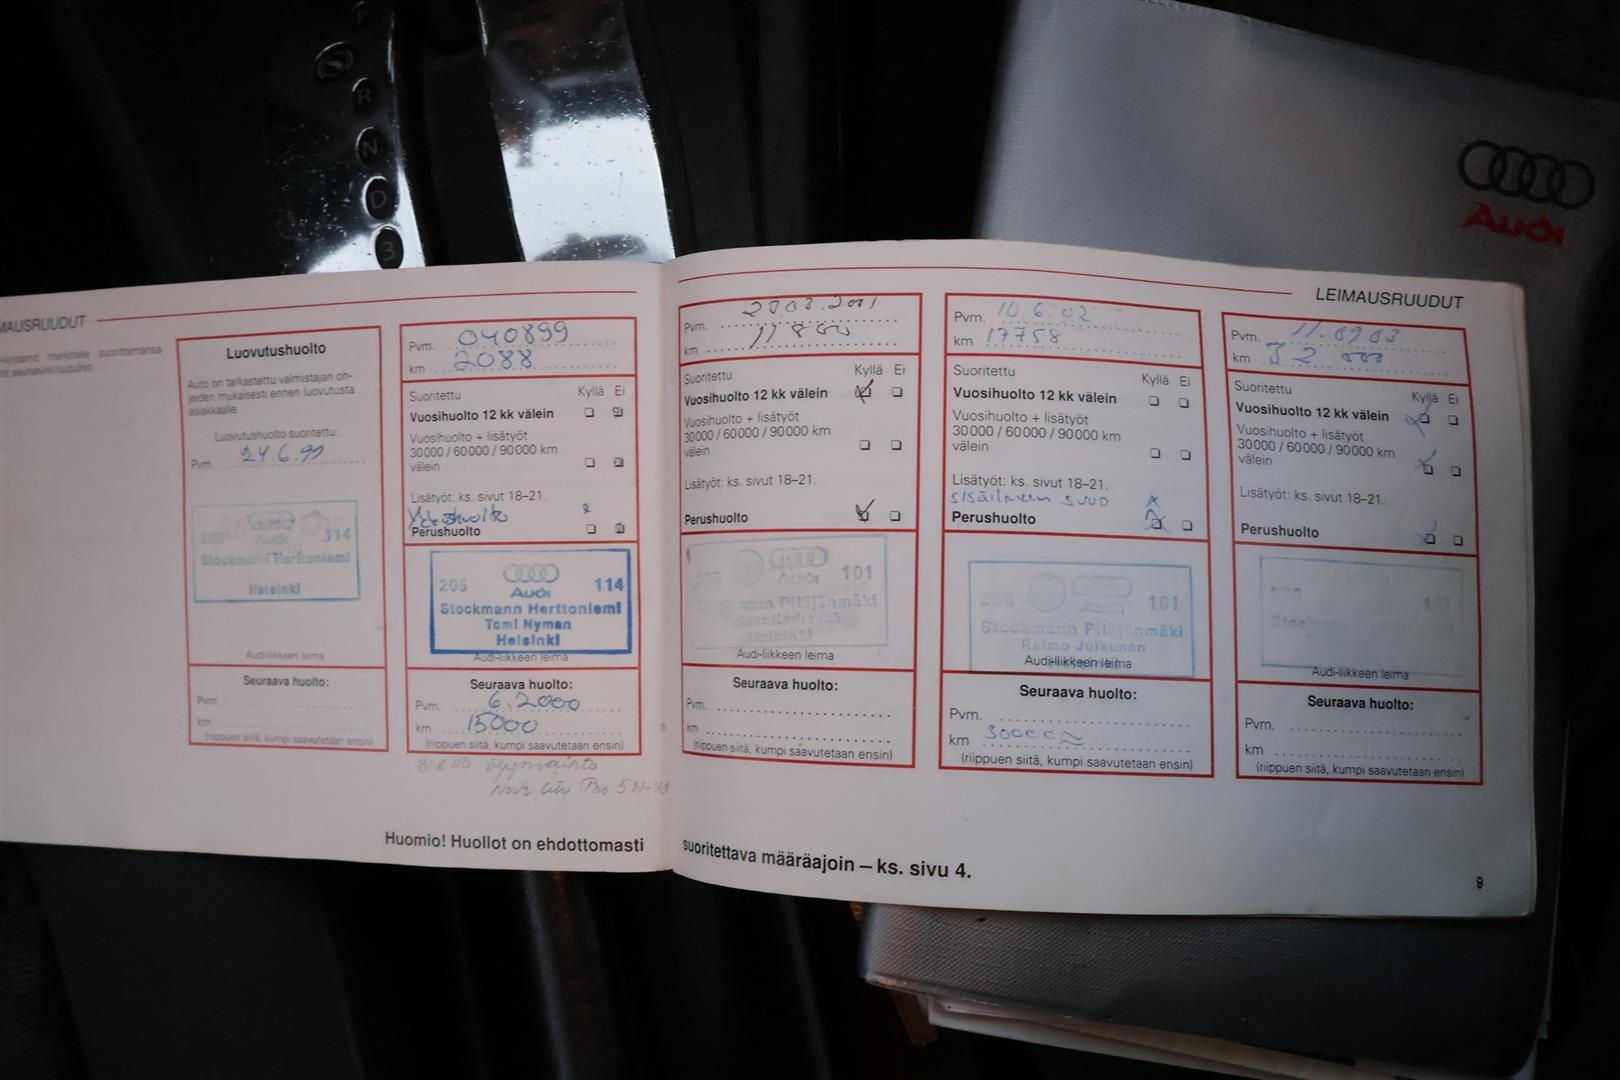 P
R
N
D
3
Audi
LEIMAUSRUUDUT
MAUSRUUDUT
suorittamansa
Luovutushuolto
Auto on tarkastettu valmistajan oh-
jeiden mukaisesti ennen luovutusta
asiakkaalle
Luovutushuolto suoritettu:
Pvm. 24.6.99
205 Audi 114
Stockmann Herttoniemi
Helsinki
Audi-liikkeen leima
Seuraava huolto:
Pvm.
km
(riippuen siitä, kumpi saavutetaan ensin)
Pvm. 040899
km 2088
Suoritettu Kyllä Ei
Vuosihuolto 12 kk välein
Vuosihuolto + lisätyöt
30000 / 60000 / 90000 km
välein
Lisätyöt: ks. sivut 18–21.
Perushuolto
205 Audi 114
Stockmann Herttoniemi
Tomi Nyman
Helsinki
Audi-liikkeen leima
Seuraava huolto:
Pvm. 6.2000
km 15000
(riippuen siitä, kumpi saavutetaan ensin)
Huomio! Huollot on ehdottomasti
Pvm. 27.03.2001
km 11800
Suoritettu Kyllä Ei
Vuosihuolto 12 kk välein
Vuosihuolto + lisätyöt
30000 / 60000 / 90000 km
välein
Lisätyöt: ks. sivut 18–21.
Perushuolto
205 Audi 101
Stockmann Pitäjänmäki
Helsinki
Audi-liikkeen leima
Seuraava huolto:
Pvm.
km
(riippuen siitä, kumpi saavutetaan ensin)
Pvm. 10.6.02
km 17758
Suoritettu Kyllä Ei
Vuosihuolto 12 kk välein
Vuosihuolto + lisätyöt
30000 / 60000 / 90000 km
välein
Lisätyöt: ks. sivut 18–21.
sisäilman suod
Perushuolto
205 Audi 101
Stockmann Pitäjänmäki
Reimo Julkunen
Audi-liikkeen leima
Seuraava huolto:
Pvm.
km 30000
(riippuen siitä, kumpi saavutetaan ensin)
Pvm. 11.0903
km 32000
Suoritettu Kyllä Ei
Vuosihuolto 12 kk välein
Vuosihuolto + lisätyöt
30000 / 60000 / 90000 km
välein
Lisätyöt: ks. sivut 18–21.
Perushuolto
101
Stockmann
Audi-liikkeen leima
Seuraava huolto:
Pvm.
km
(riippuen siitä, kumpi saavutetaan ensin)
suoritettava määräajoin – ks. sivu 4.
9